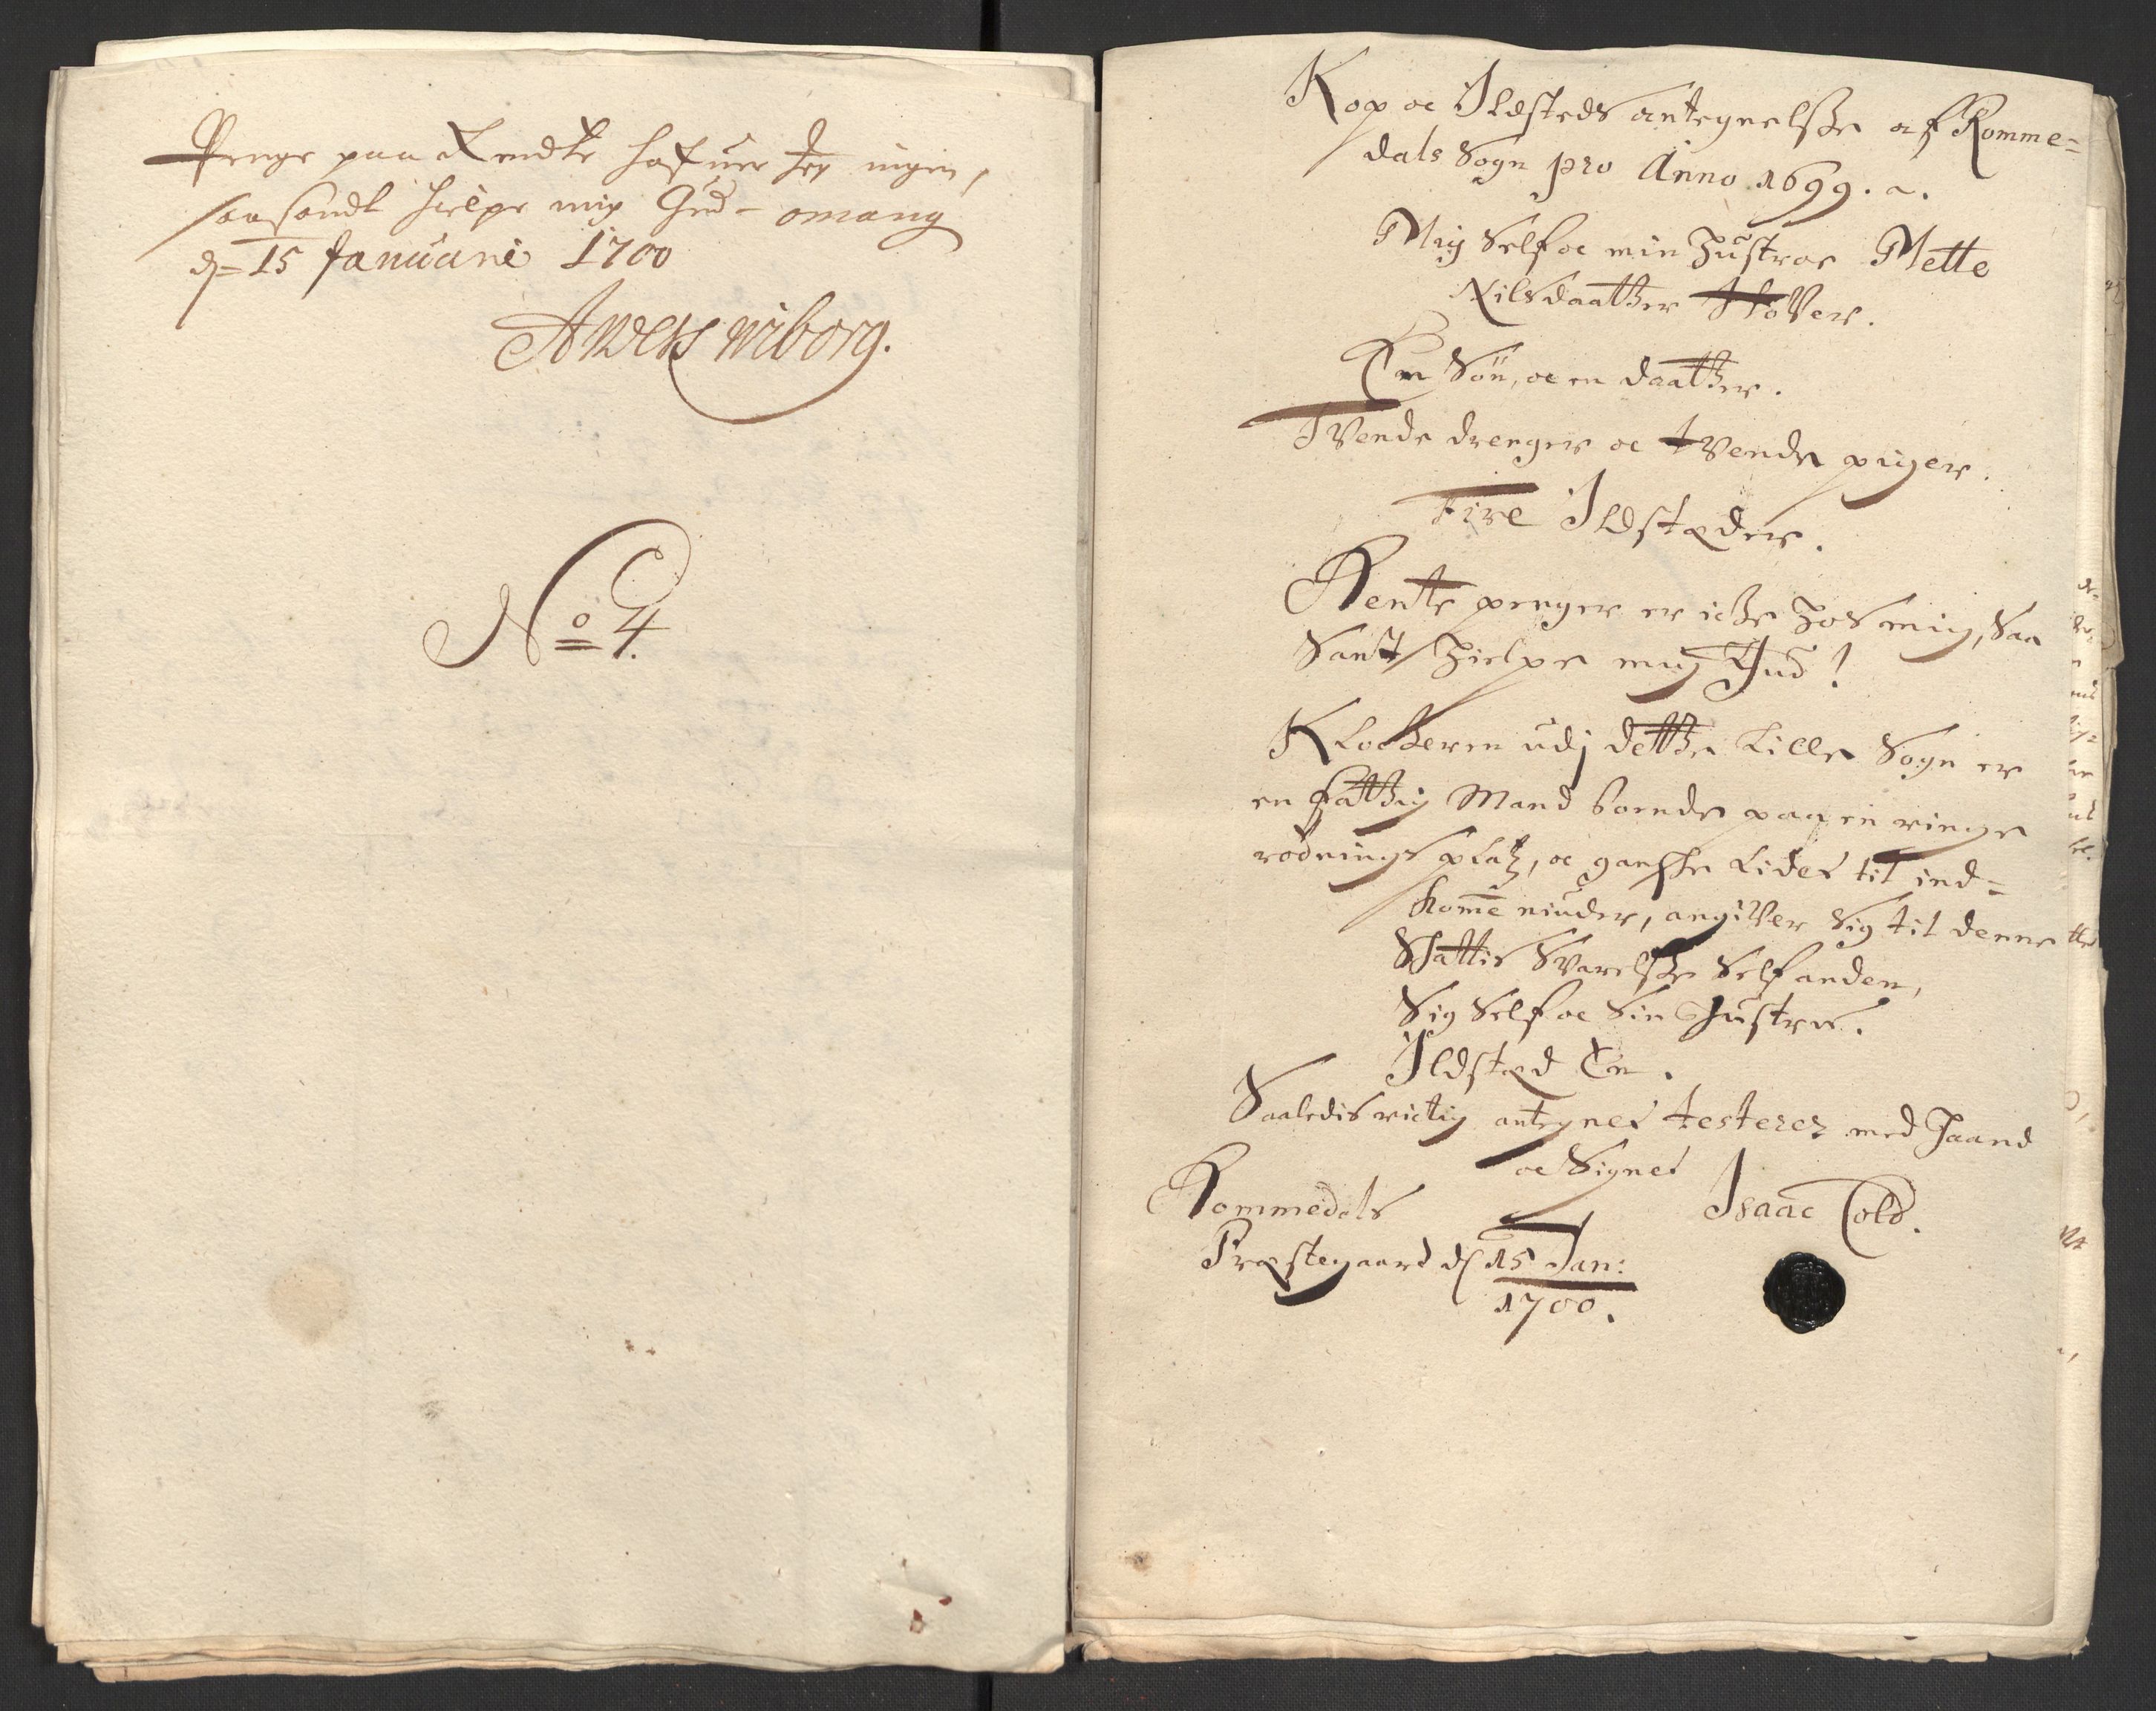 Penge paa Rendte hafuer Jeg ingen,
saa sandt hielpe mig Gud – omang
d= 15 Januarii 1700
Anders wiborg.
No 4.
Kop oc Ildsteds antegnelsse af Romme=
dals Sogn pro Anno 1699.
Mig Self oc min Hustroe Mette
Nilsdaatter
En Sön, oc en daatter.
Tvende drenger oc tvende piger.
Fire Ildstæder.
Rente penger er icke hos mig, Saa
Sant hielpe mig Gud!
Klockeren udj dette Lille Sogn er
en fattig Mand boende paa en ringe
rödnings platz, oc ganske Lidet til ind=
komē niuder, angiver Sig til denne
Skattis Svarelsse Self anden,
Sig Self oc Sin Hustroe.
Ildstæd En.
Saaledis rictig antegnet testerer med Haand
oc Signet
Rommedals Isaac Cold.
Præstegaard d 15 Jan:
1700.